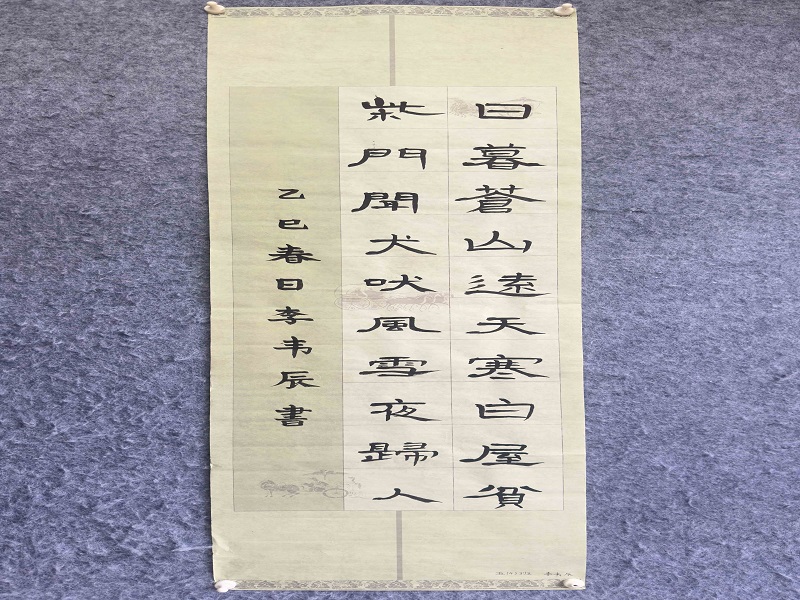 日暮蒼山遠天寒白屋貧
柴門聞犬吠風雪夜歸人
乙巳春日李韦辰書